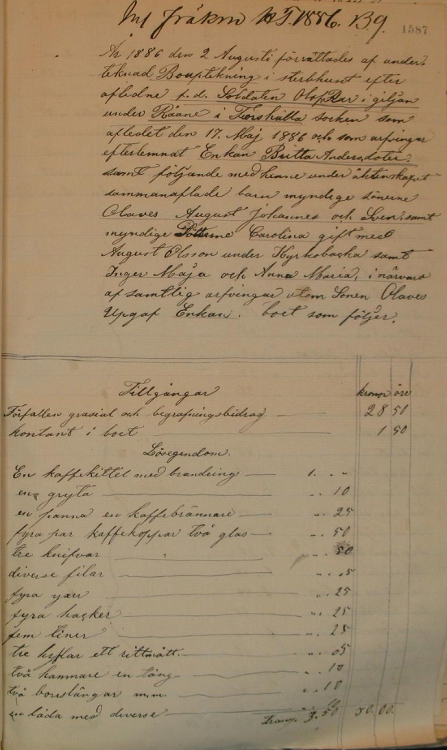 Int Fräkne HT 1886. B 9.
1587
År 1886 den 2 Augusti förrättades af under-
teknad Bouptekning i sterbhuset efter
aflednе f.d. Soldaten Olof Rar i giljan
under Röane i Forshälla Socken som
afledet den 17. Maj 1886 och som arfvingar
efterlemnat Enkan Britta Andersdoter
samt följande med henne under äktenskapet
sammanaflade barn myndige sönerne
Olaves August Johannes och Sven, samt
myndige Carolina gift med
August Olsson under Kyrkobacka samt
Inger Maja och Anna Maria, i närvaro
af samtlig arfvingar utom Sonen Olaves
Upgaf Enkan boet som följer.
Tillgångar kronor öre
Förfallen grasial och begrafningsbidrag 28 50
kontant i boet 1 50
Lösegendom.
En kaffekittel med brandring 1. " -
en gryta " . 10
en panna en kaffebrännare " . 25
fyra par kaffekoppar två glas " . 50
tre knifvar " . 50
diverse filar " . 05
fyra yxer " . 25
fyra hacker " . 25
fem tiner " . 25
tre ett rittmått " . 05
två hammare en tång " . 10
två m.m. " . 10
en låda med diverse
Kronor 3.50 30.00.